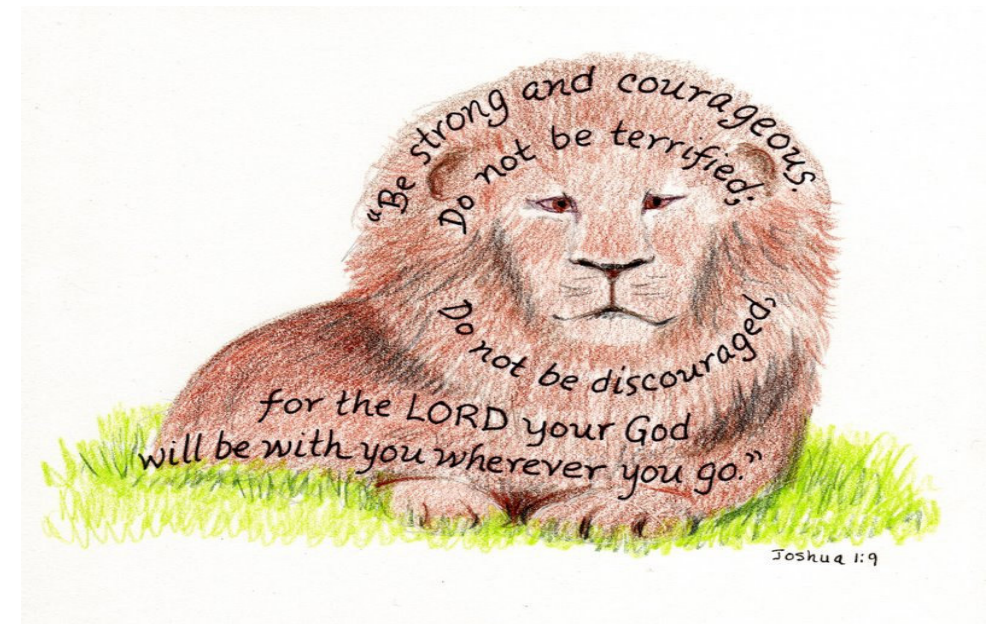 “Be strong and courageous.
Do not be terrified;
Do not be discouraged,
for the LORD your God
will be with you wherever you go.”
Joshua 1:9